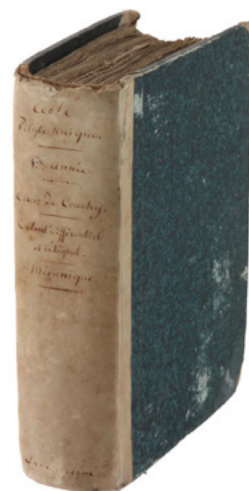 Ecole
Polytechnique
Année
Cours de Cauchy.
Calcul différentiel
et intégral
Mécanique